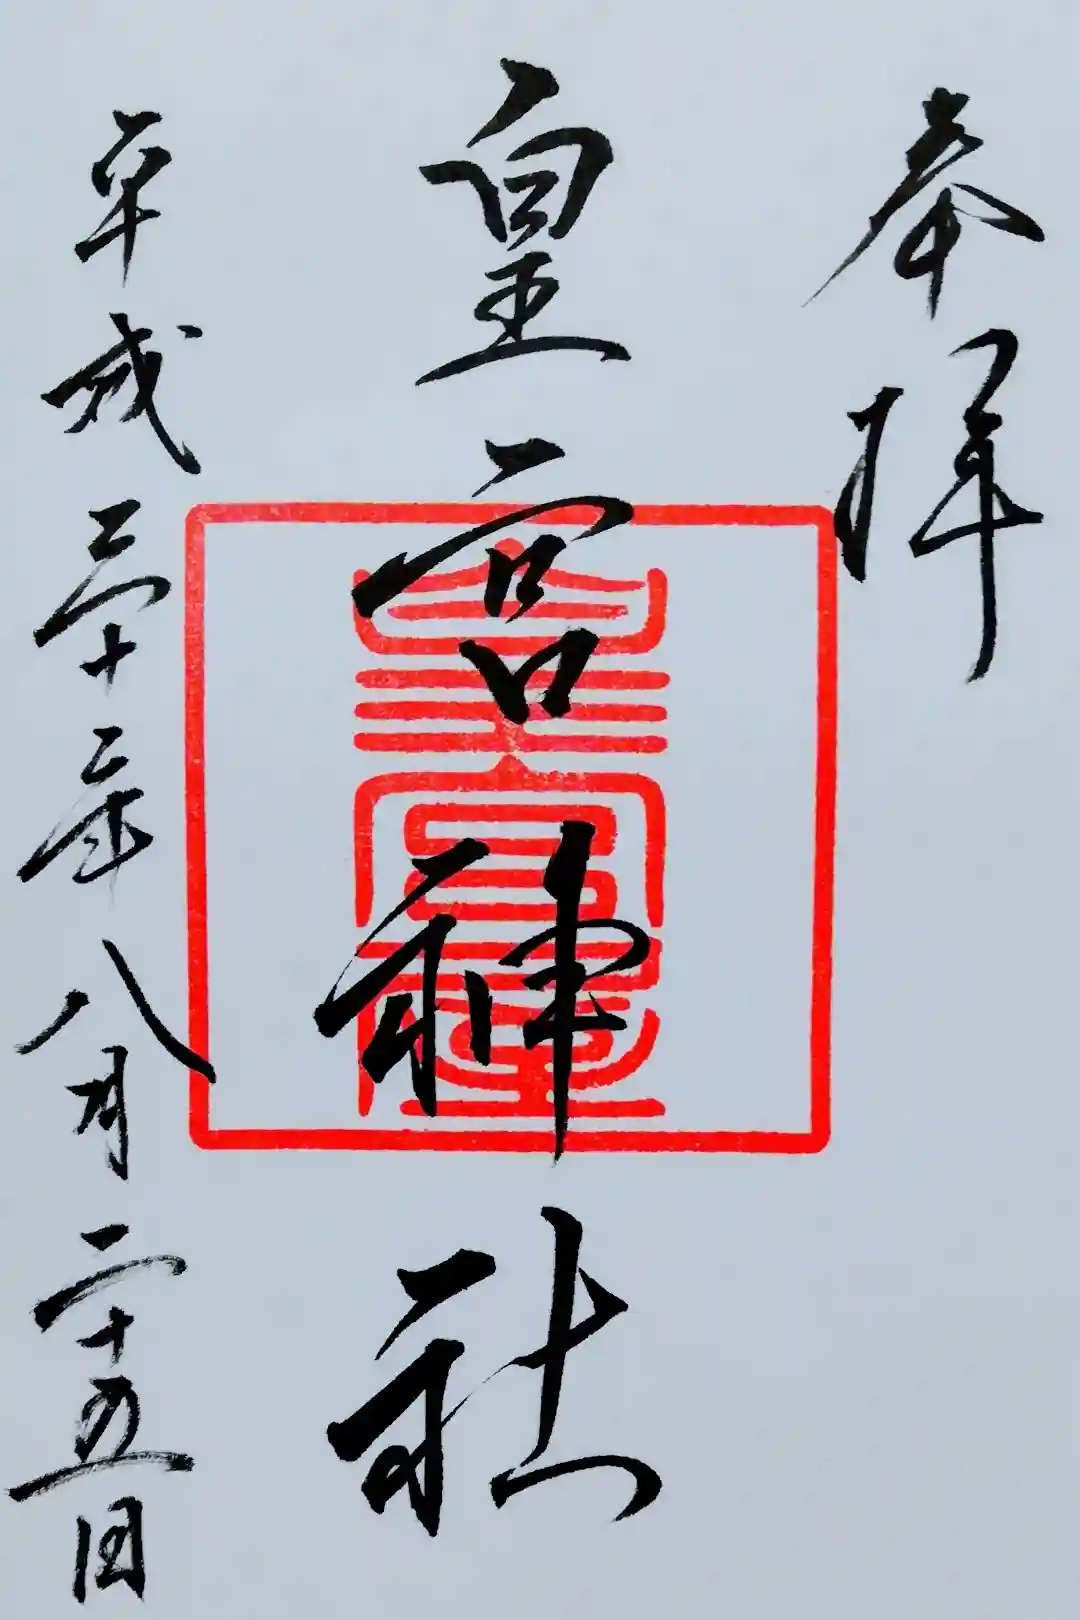 奉拝
皇宮神社
平成三十年八月二十五日